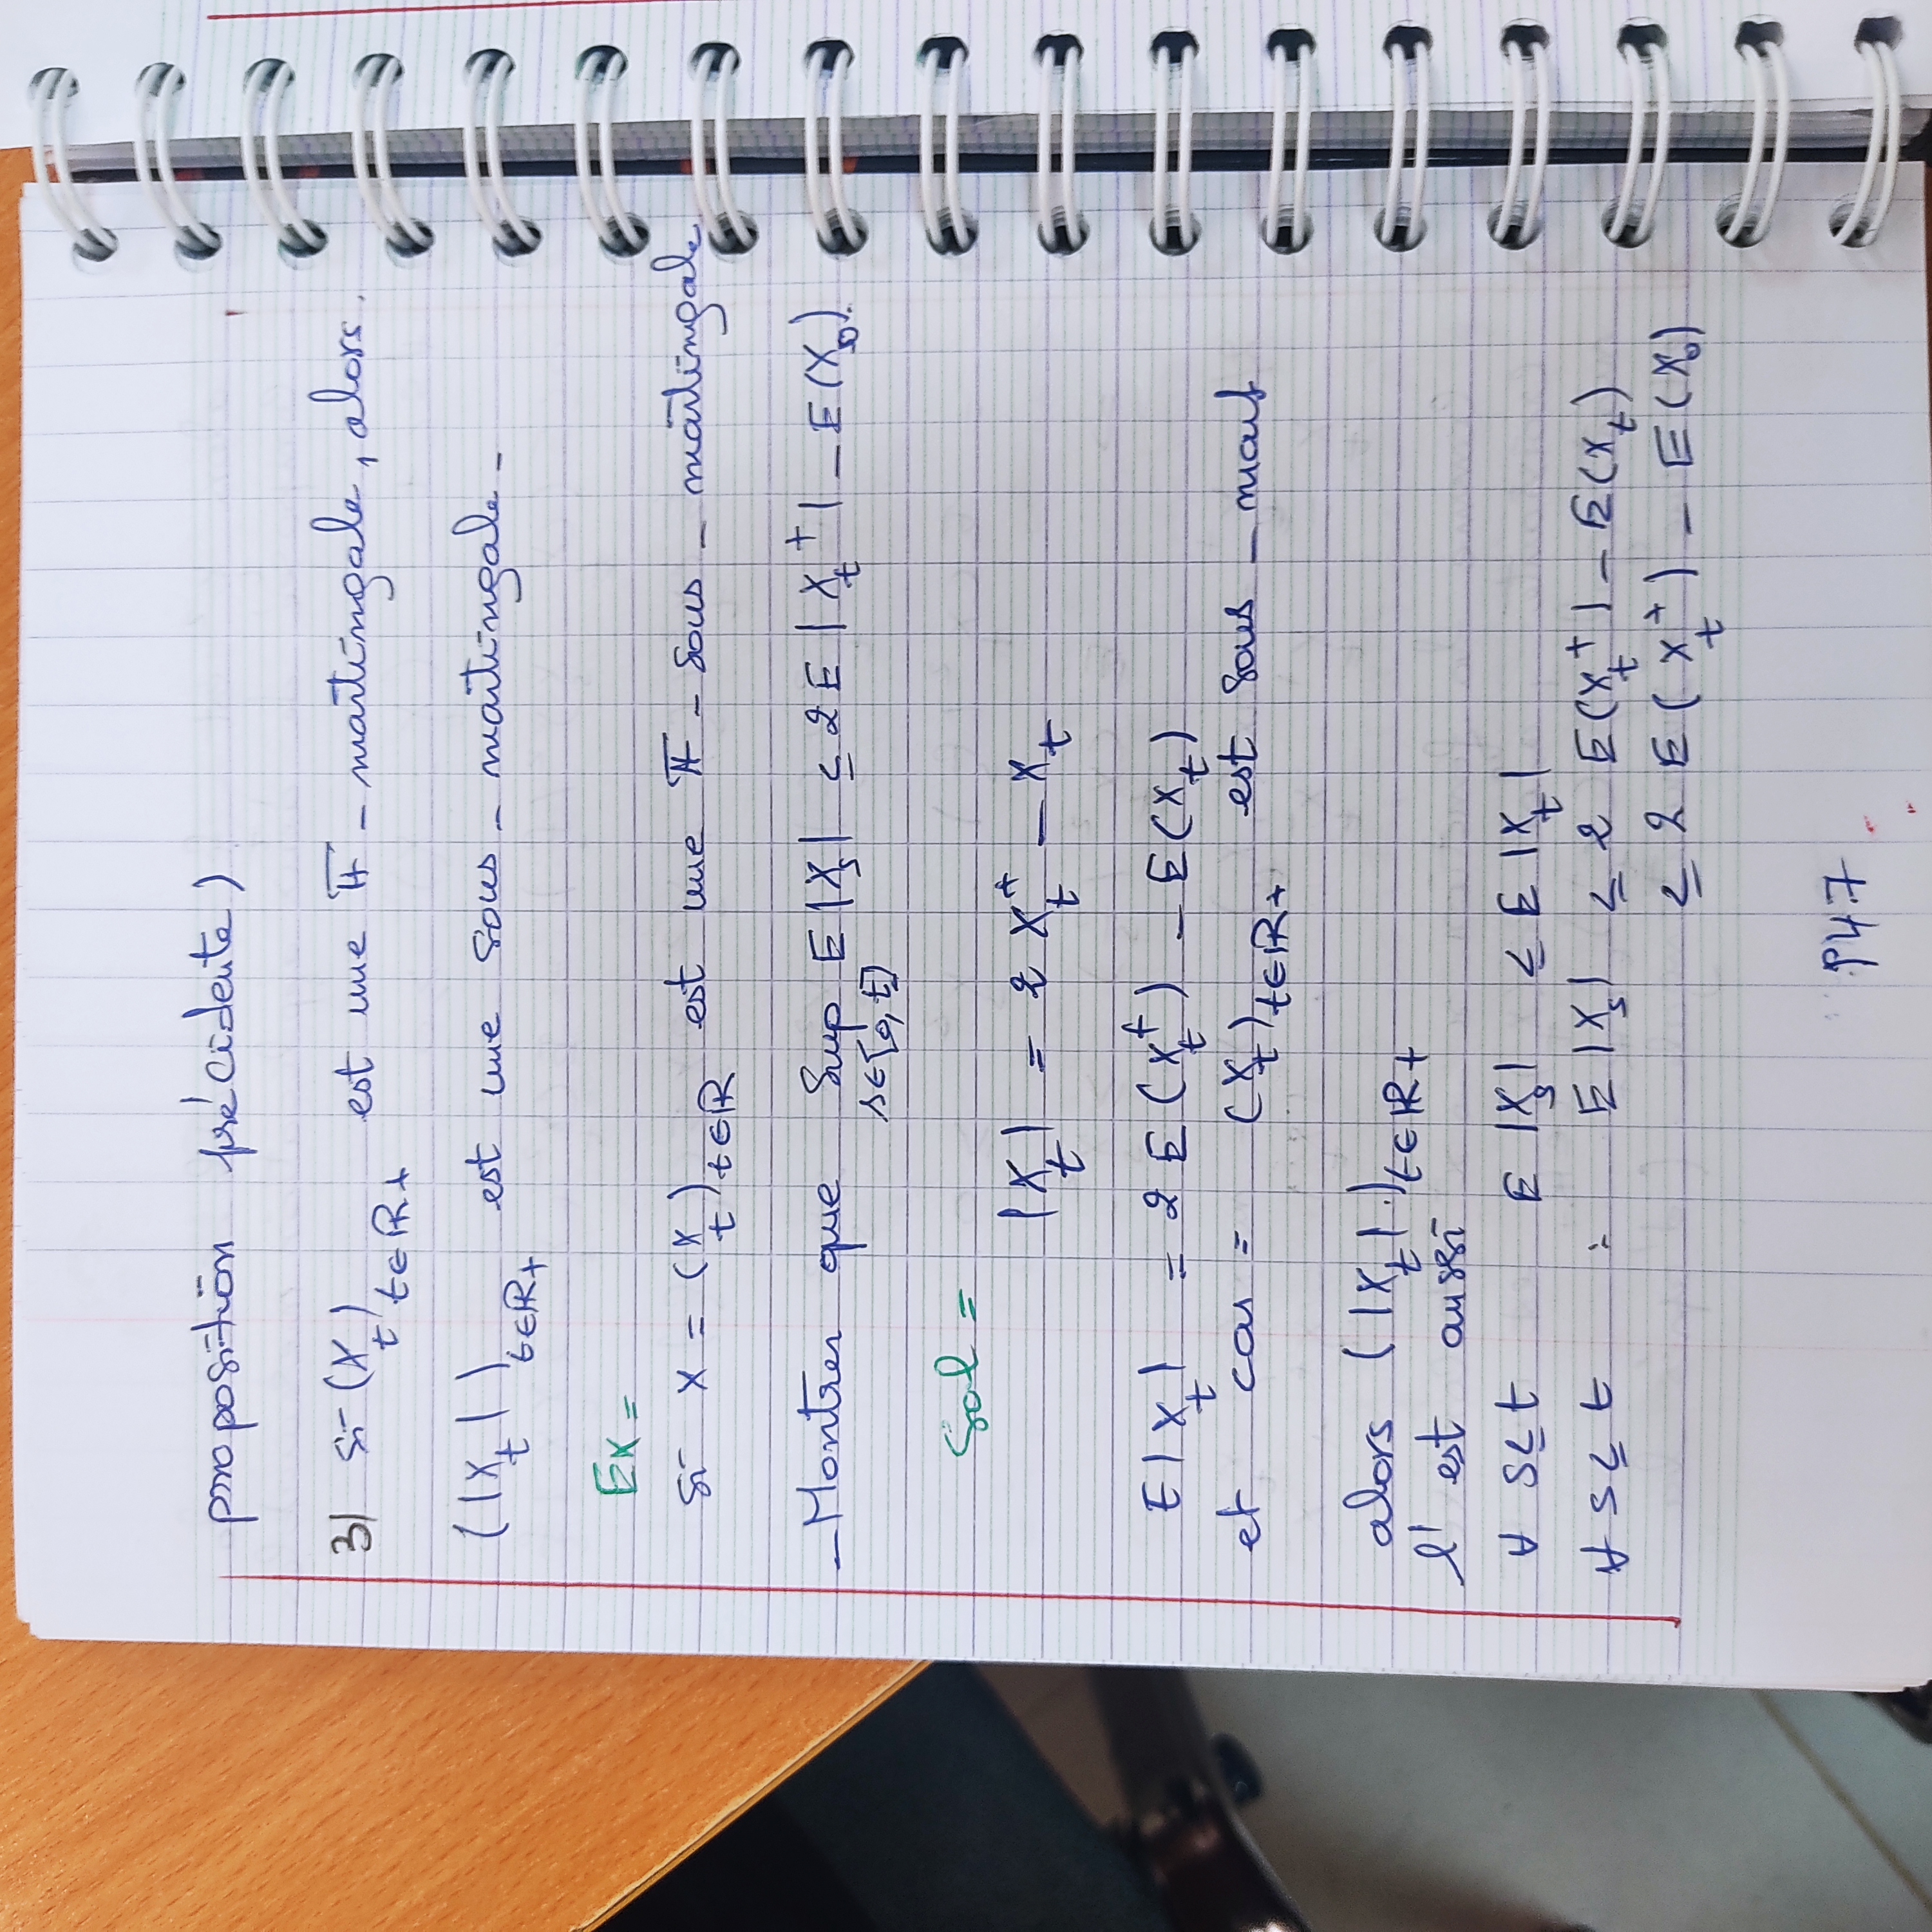 proposition précidente)
3) si (X_t)_{t∈ℝ+} est une 𝔽 - martingale, alors.
(|X_t|)_{t∈ℝ+} est une sous - martingale -
Ex =
si X = (X_t)_{t∈ℝ} est une 𝔽 - sous - martingale
- Montrer que Sup_{s∈[0,t]} E|X_s| ≤ 2E|X_t^+| - E(X_0).
Sol =
|X_t| = 2 X_t^+ - X_t
E|X_t| = 2 E(X_t^+) - E(X_t)
et car = (X_t)_{t∈ℝ+} est sous - mart
alors (|X_t|.)_{t∈ℝ+}
l'est aussi
∀ s≤t E|X_s| ≤ E|X_t|
∀ s≤t : E|X_s| ≤ 2 E(X_t^+) - E(X_t)
≤ 2 E(X_t^+) - E(X_0)
P47